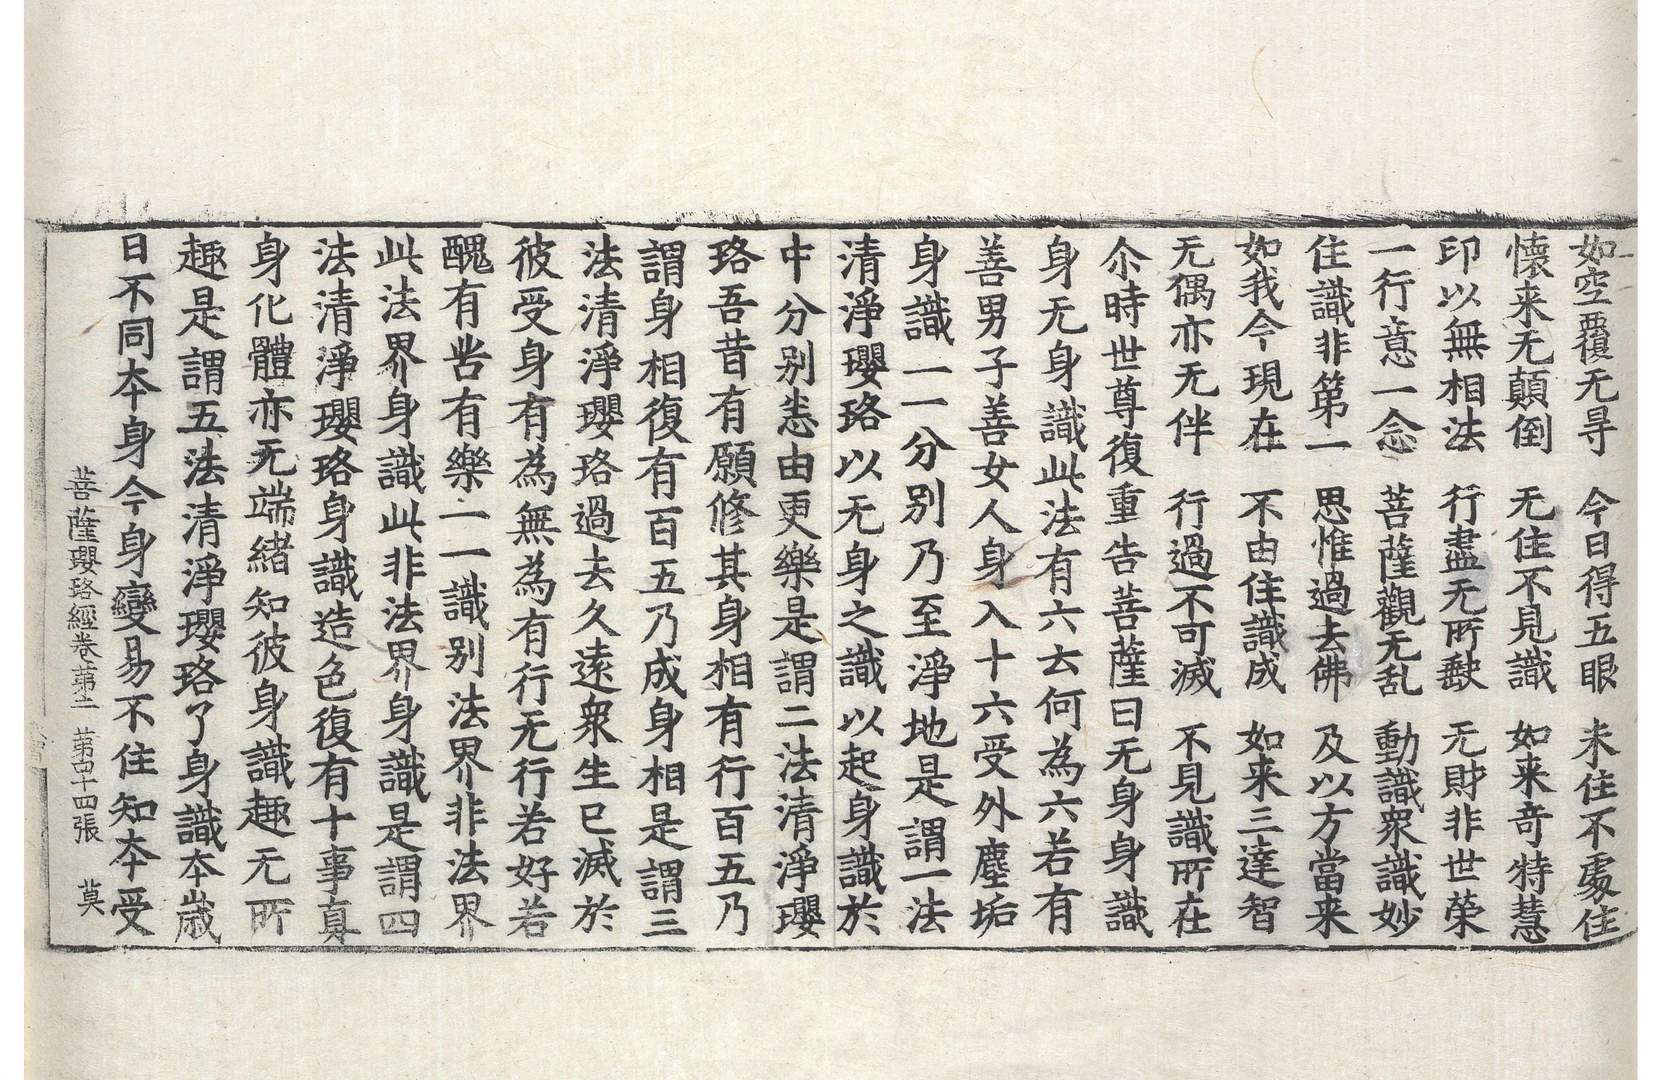 如空覆无㝵 今日得五眼 未住不處住
懷来无顛倒 无住不見識 如来奇特慧
印以無相法 行盡无所猒 无財非世榮
一行意一念 菩薩觀无乱 動識衆識妙
住識非第一 思惟過去佛 及以方當来
如我今現在 不由住識成 如来三達智
无偶亦无伴 行過不可滅 不見識所在
尒時世尊復重告菩薩曰无身身識
身无身識此法有六云何為六若有
善男子善女人身入十六受外塵垢
身識一一分别乃至淨地是謂一法
清淨瓔珞以无身之識以起身識於
中分别恚由更樂是謂二法清淨瓔
珞吾昔有願修其身相有行百五乃
謂身相復有百五乃成身相是謂三
法清淨瓔珞過去久遠衆生已滅於
彼受身有為無為有行无行若好若
醜有苦有樂一一識别法界非法界
此法界身識此非法界身識是謂四
法清淨瓔珞身識造色復有十事真
身化體亦无端緒知彼身識趣无所
趣是謂五法清淨瓔珞了身識本歲
日不同夲身今身變易不住知夲受
菩薩瓔珞經卷第二 第四十四張 莫